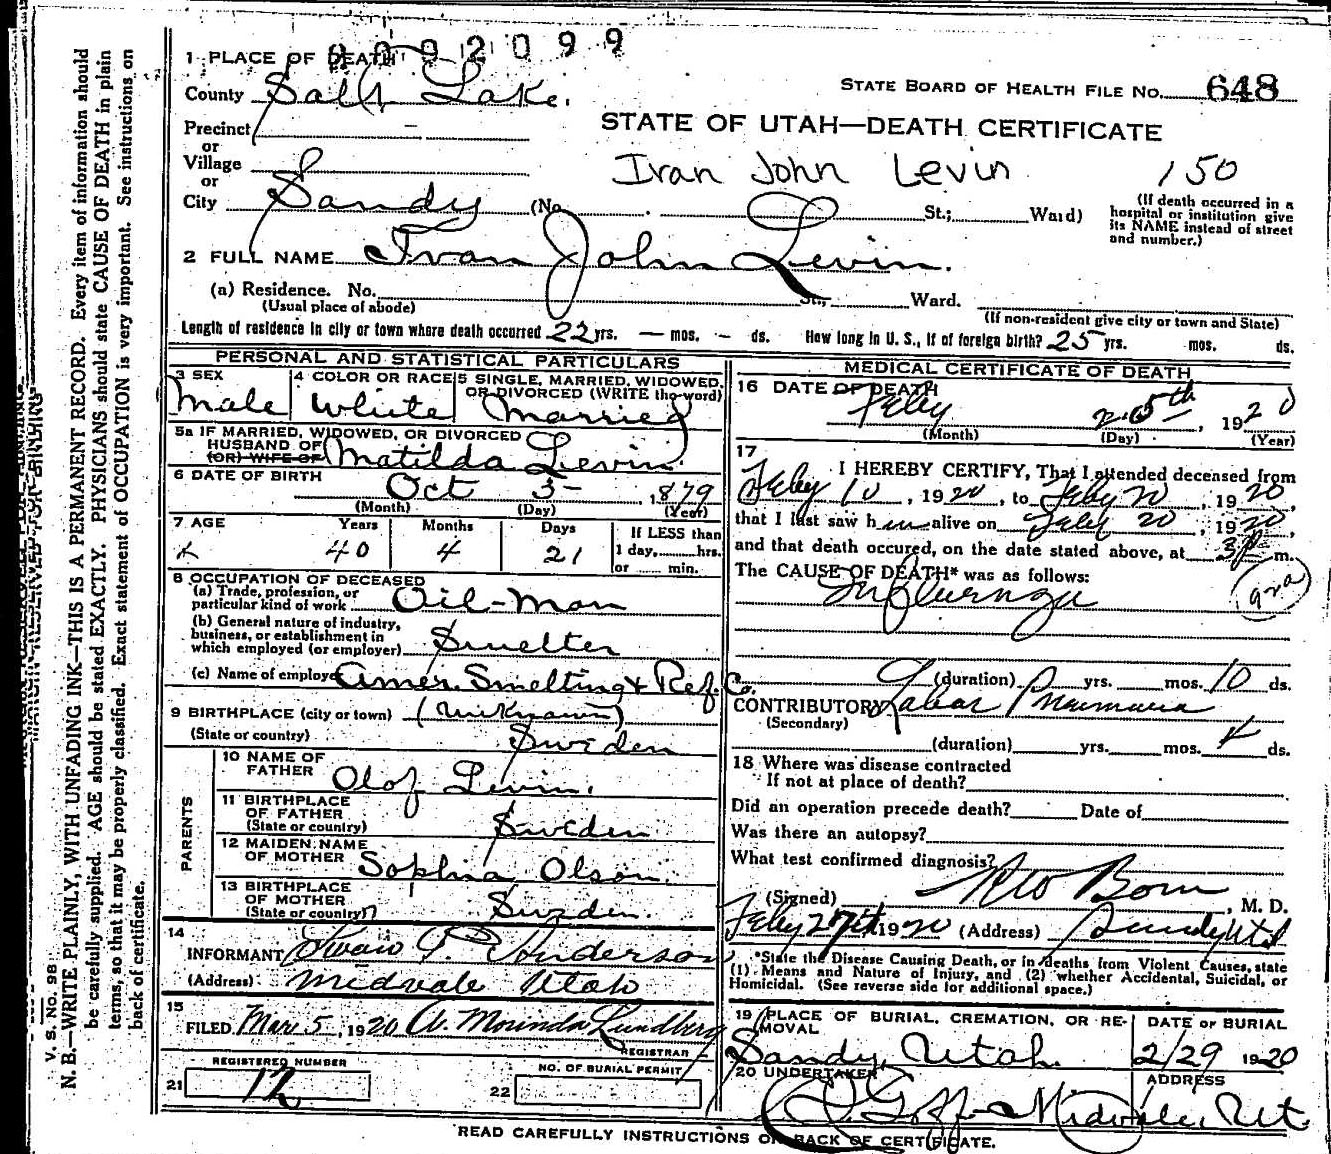 2092099
1 PLACE OF DEATH
County Salt Lake.
STATE BOARD OF HEALTH FILE NO. 648
Precinct -
or
Village
or
City Sandy (No. St.; Ward)
STATE OF UTAH—DEATH CERTIFICATE
Ivan John Levin 150
(If death occurred in a
hospital or institution give
its NAME instead of street
and number.)
2 FULL NAME Ivan John Levin.
(a) Residence. No. St., Ward.
(Usual place of abode)
(If non-resident give city or town and State)
Length of residence in city or town where death occurred 22 yrs. — mos. — ds. How long in U. S., if of foreign birth? 25 yrs. mos. ds.
PERSONAL AND STATISTICAL PARTICULARS
3 SEX 4 COLOR OR RACE 5 SINGLE, MARRIED, WIDOWED, OR DIVORCED (WRITE the word)
Male White Married
5a IF MARRIED, WIDOWED, OR DIVORCED
HUSBAND OF
(OR) WIFE OF Matilda Levin.
6 DATE OF BIRTH Oct 3- 1879
(Month) (Day) (Year)
7 AGE Years Months Days If LESS than
40 4 21 1 day,......hrs.
or ...... min.
8 OCCUPATION OF DECEASED
(a) Trade, profession, or
particular kind of work Oil-Man
(b) General nature of industry,
business, or establishment in
which employed (or employer) Smelter
(c) Name of employer Amer. Smelting & Ref. Co.
9 BIRTHPLACE (city or town) (Unknown)
(State or country) Sweden
PARENTS
10 NAME OF
FATHER Olof Levin.
11 BIRTHPLACE
OF FATHER
(State or country) Sweden
12 MAIDEN NAME
OF MOTHER Sophia Olson.
13 BIRTHPLACE
OF MOTHER
(State or country) Sweden.
14
INFORMANT Swan P. Anderson
(Address) Midvale Utah
15
FILED Mar 5, 1920 A. Mourinda Lundberg
REGISTRAR
REGISTERED NUMBER
21 12
NO. OF BURIAL PERMIT
22
MEDICAL CERTIFICATE OF DEATH
16 DATE OF DEATH
Feby 25th, 1920
(Month) (Day) (Year)
17
I HEREBY CERTIFY, That I attended deceased from
Feby 10, 1920, to Feby 20, 1920,
that I last saw him alive on Feby 20, 1920,
and that death occured, on the date stated above, at 3P m.
The CAUSE OF DEATH* was as follows:
Influenza
(duration) yrs. mos. 10 ds.
CONTRIBUTORY Lobar Pneumonia
(Secondary)
(duration) yrs. mos. 4 ds.
18 Where was disease contracted
If not at place of death?
Did an operation precede death? Date of
Was there an autopsy?
What test confirmed diagnosis?
(Signed) Born, M. D.
Feby 27th, 1920 (Address) Sandy Utah
*State the Disease Causing Death, or in deaths from Violent Causes, state
(1) Means and Nature of Injury, and (2) whether Accidental, Suicidal, or
Homicidal. (See reverse side for additional space.)
19 PLACE OF BURIAL, CREMATION, OR RE-
MOVAL
DATE OF BURIAL
Sandy, Utah. 2/29 1920
20 UNDERTAKER
ADDRESS
Goff Midvale, Ut.
READ CAREFULLY INSTRUCTIONS ON BACK OF CERTIFICATE.
V. S. NO. 98
N. B.—WRITE PLAINLY, WITH UNFADING INK—THIS IS A PERMANENT RECORD. Every item of information should
be carefully supplied. AGE should be stated EXACTLY. PHYSICIANS should state CAUSE OF DEATH in plain
terms, so that it may be properly classified. Exact statement of OCCUPATION is very important. See instructions on
back of certificate.